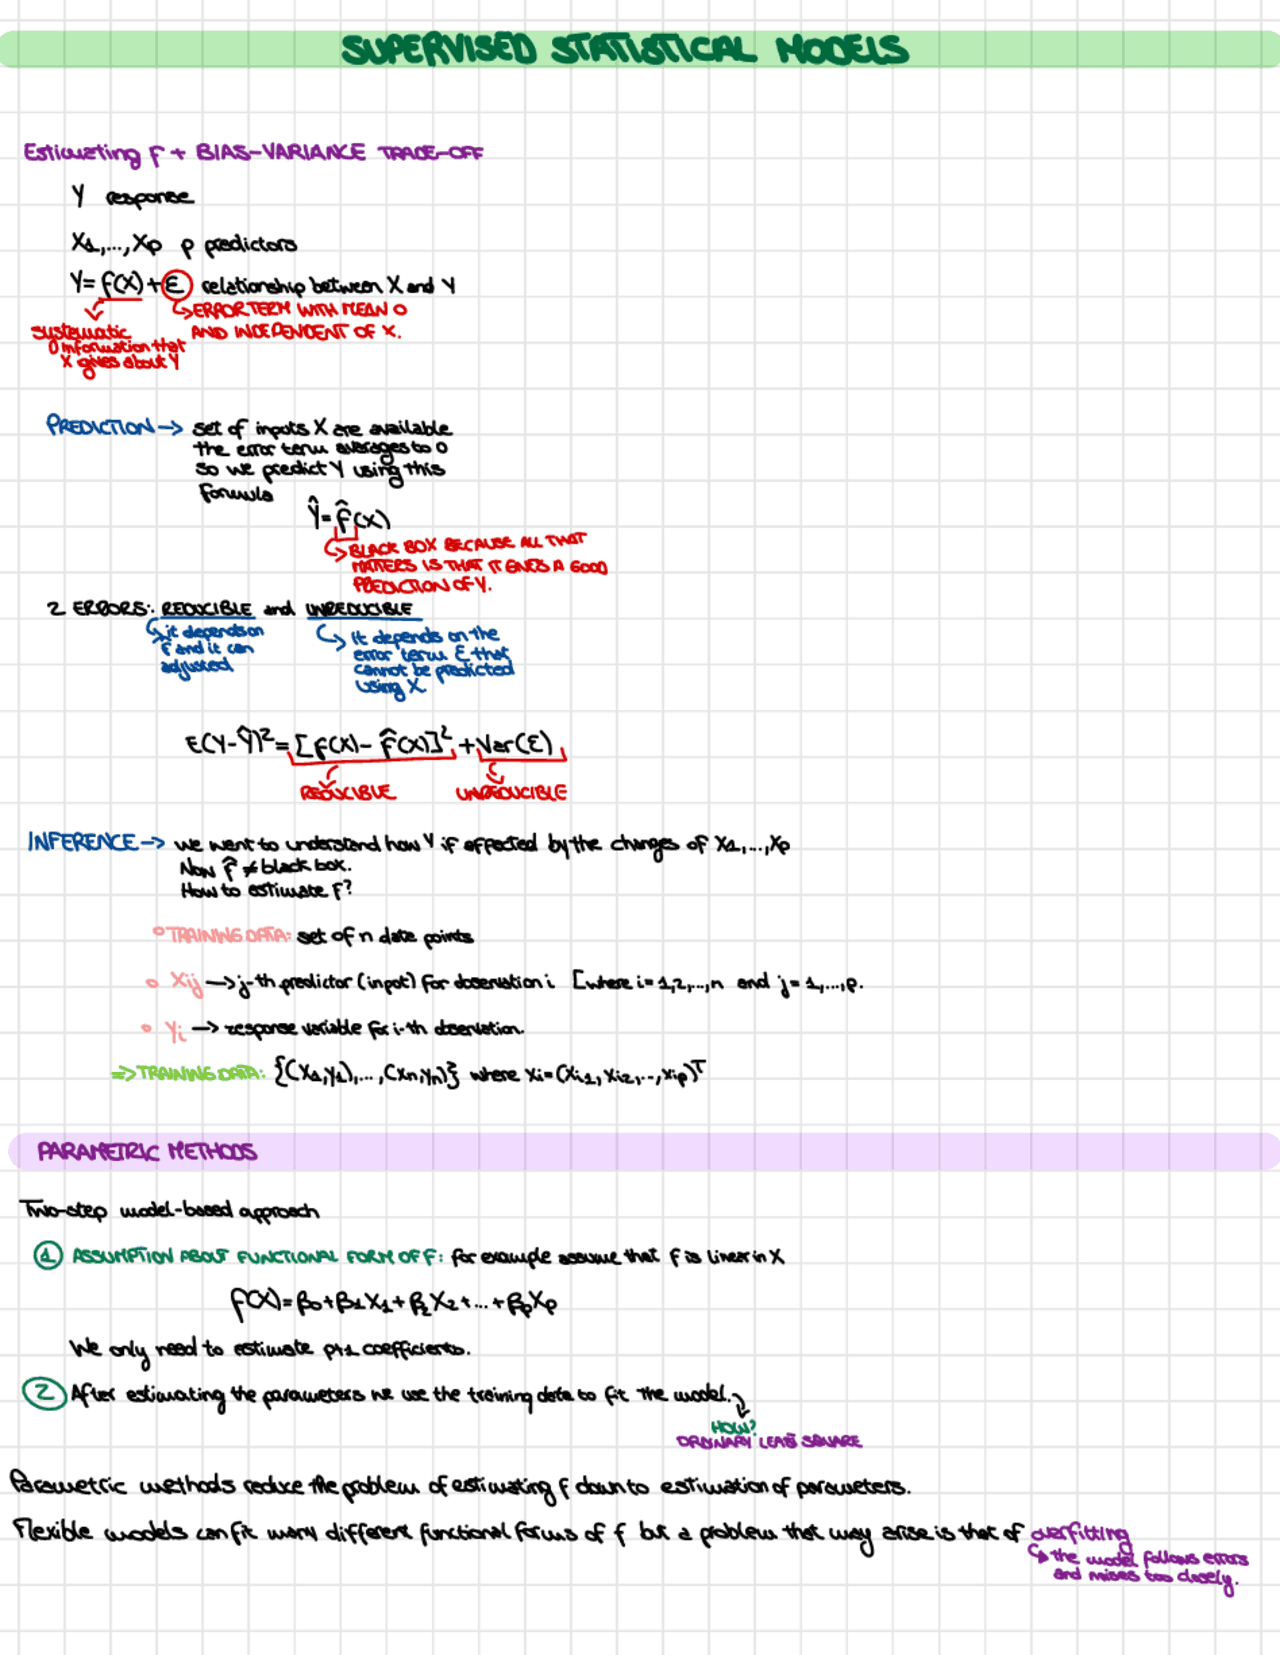 SUPERVISED STATISTICAL MODELS
Estimating f + BIAS-VARIANCE TRADE-OFF
Y response
X1,...,Xp p predictors
Y = f(X) + ε relationship between X and Y
ERROR TERM WITH MEAN 0
AND INDEPENDENT OF X.
systematic
information that
X gives about Y
PREDICTION → set of inputs X are available
the error term averages to 0
so we predict Y using this
formula
Ŷ = f̂(X)
BLACK BOX BECAUSE ALL THAT
MATTERS IS THAT IT GIVES A GOOD
PREDICTION OF Y.
2 ERRORS: REDUCIBLE and UNREDUCIBLE
it depends on
f̂ and it can
adjusted
it depends on the
error term ε that
cannot be predicted
using X
E(Y-Ŷ)² = [f(X) - f̂(X)]² + Var(ε)
REDUCIBLE UNREDUCIBLE
INFERENCE → we want to understand how Y if affected by the changes of X1,...,Xp
Now f̂ ≠ black box.
How to estimate f?
° TRAINING DATA: set of n data points
° Xij → j-th predictor (input) for observation i [where i = 1,2,...,n and j = 1,...,p.
° Yi → response variable for i-th observation.
⇒ TRAINING DATA: {(X1,y1),...,(Xn,yn)} where xi = (xi1, xi2,..., xip)ᵀ
PARAMETRIC METHODS
Two-step model-based approach
1 ASSUMPTION ABOUT FUNCTIONAL FORM OF F: for example assume that f is linear in X
f(X) = β0 + β1X1 + β2X2 + ... + βpXp
We only need to estimate p+1 coefficients.
2 After estimating the parameters we use the training data to fit the model.
HOW?
ORDINARY LEAST SQUARE
Parametric methods reduce the problem of estimating f down to estimation of parameters.
Flexible models can fit many different functional forms of f but a problem that may arise is that of overfitting
the model follows errors
and noises too closely.